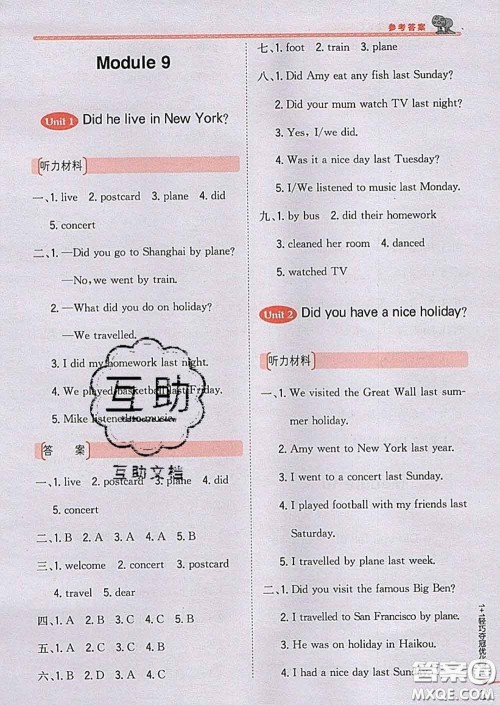 参考答案
Module 9
Unit 1 Did he live in New York?
听力材料
一、1. live 2. postcard 3. plane 4. did
5. concert
二、1. —Did you go to Shanghai by plane?
—No, we went by train.
2. —What did you do on holiday?
—We travelled.
3. I did my homework last night.
4. We played basketball last Friday.
5. Mike listened to music.
互助
互助文档
答案
一、1. live 2. postcard 3. plane 4. did
5. concert
二、1. B 2. A 3. A 4. A 5. B
三、1. welcome 2. concert 3. postcard
4. travel 5. dear
四、1. A 2. B 3. C 4. A 5. B
五、1. C 2. A 3. C 4. B
六、1. A 2. B 3. C 4. B
七、1. foot 2. train 3. plane
八、1. Did Amy eat any fish last Sunday?
2. Did your mum watch TV last night?
3. Yes, I/we did.
4. It was a nice day last Tuesday?
5. I/We listened to music last Monday.
九、1. by bus 2. did their homework
3. cleaned her room 4. danced
5. watched TV
Unit 2 Did you have a nice holiday?
听力材料
一、1. We visited the Great Wall last sum-
mer holiday.
2. Amy went to New York last year.
3. I went to a concert last Sunday.
4. I played football with my friends last
Saturday.
5. I travelled by plane last week.
二、1. Did you visit the famous Big Ben?
2. I travelled to San Francisco by plane.
3. I had a holiday in Haikou.
4. I had a nice day last Sunday.
1+1轻巧夺冠优化
答案圈
MXQE.COM